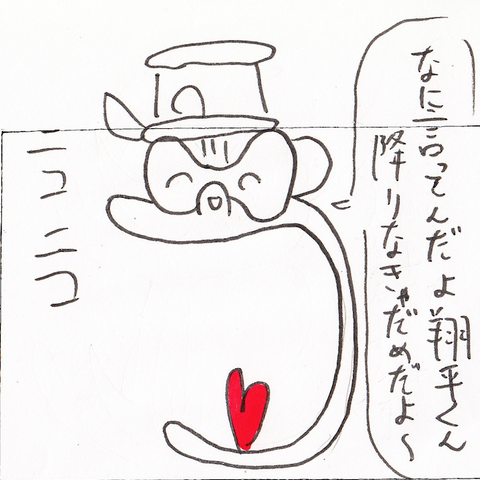 なに言ってんだよ翔平くん
降りなきゃだめだよ〜
ニコニコ